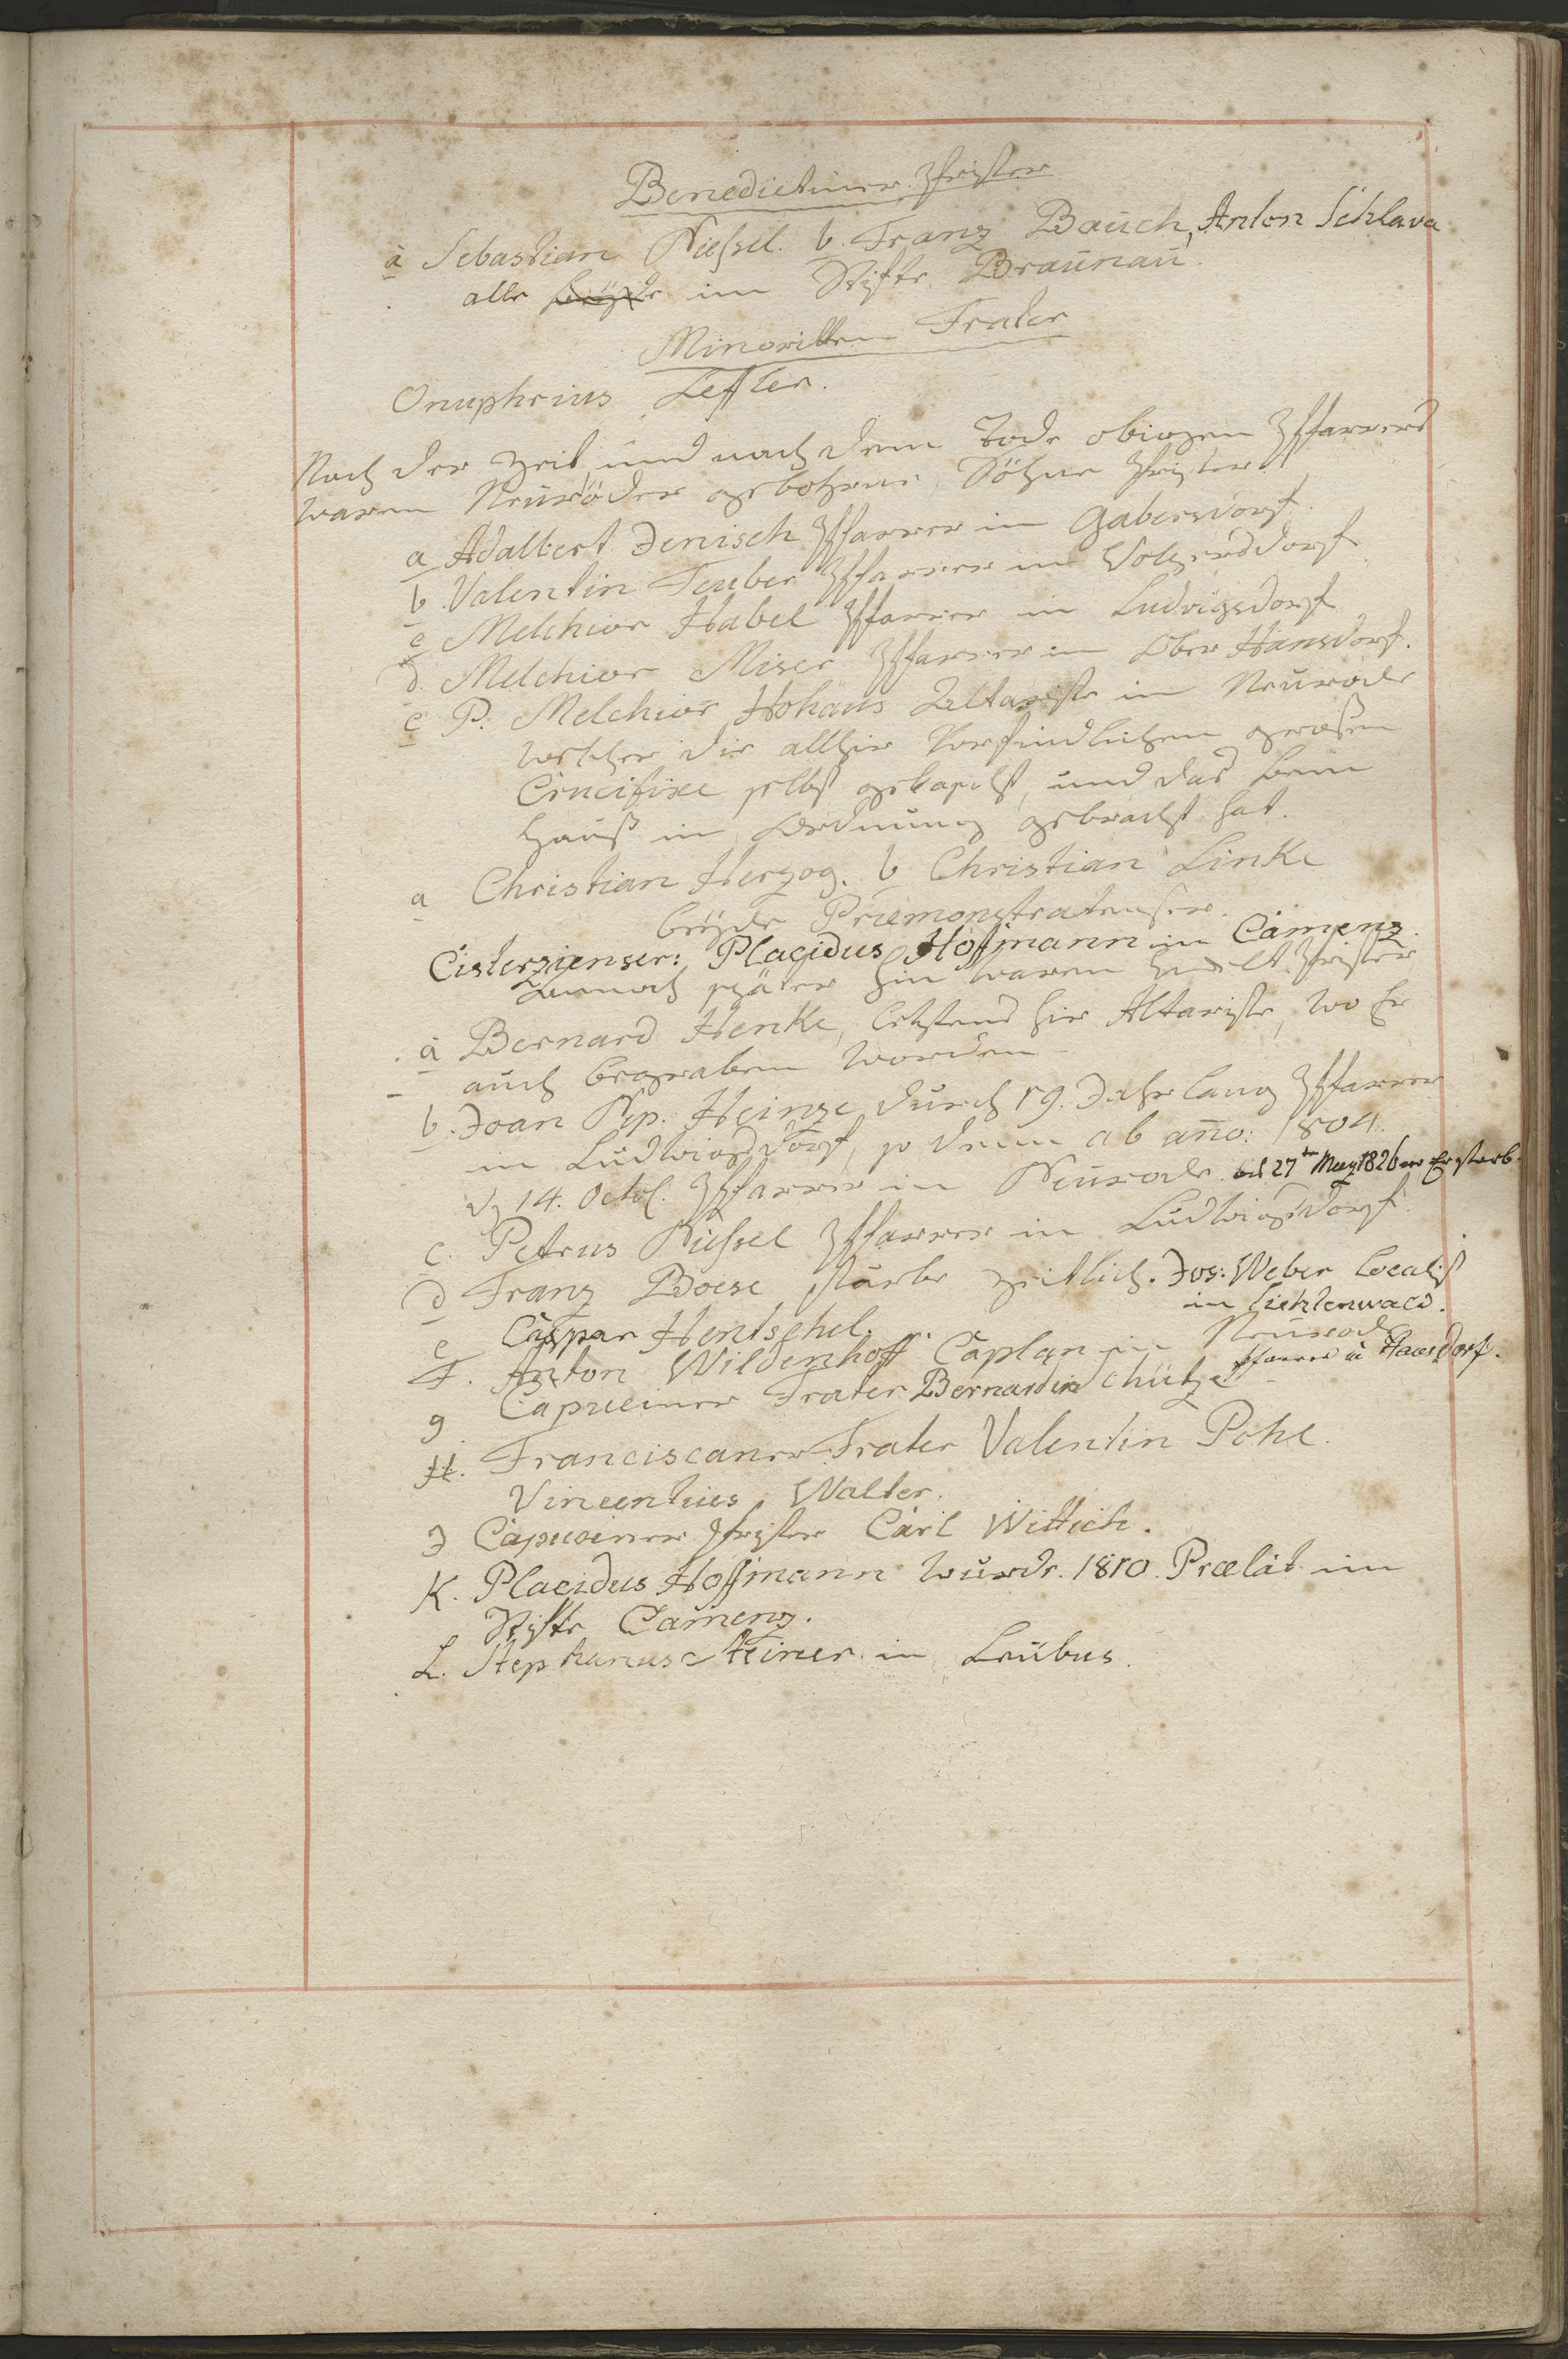 Benedictiner Prister
a Sebastian Nießel. b. Franz Bauch, Anton Schlava
alle beyde im Stifte Braunau.
Minoritten Frater
Onuphrius Leffler.
Nach der Zeit und nach dem Tode obigen Pfarrers
waren Neuröder gebohrne Söhne Prister
a Adalbert Jenisch Pfarrer in Gabersdorf.
b. Valentin Teuber Pfarrer in Volpersdorf
c Melchior Habel Pfarrer in Ludvigsdorf
d. Melchior Miser Pfarrer in Ober Hansdorf.
e P. Melchior Hohaus Altariste in Neurode
welcher die allhir Vorfindlichen großen
Crucifixe selbst und das Bein
Hauß in Ordnung gebracht hat.
a Christian Herzog. b Christian Linke
beyde Præmonstratenser.
Cisterzienser: Placidus Hoffmann in Camenz.
später hin waren Prister
a Bernard Henke, letztens hir Altariste, wo Er
auch begraben worden
b. Joan Nep. Heinze durch 19. Jahr lang Pfarrer
in Ludwigsdorf, so denn ab año: 1804.
d 14. Octob. Pfarrer in Neurode. 27ten May 1826 er starb.
c. Petrus Nießel Pfarrer in Ludwigsdorf.
d Franz Boese starb zeitlich. Jos: Weber Localist
in Lichtenwald.
e Caspar Hentschel.
F. Anton Wildenhoff Caplan in Neurode
Pfarrer in Hausdorf.
g Capuciner Frater Bernardin Schütze
H. Franciscaner Frater Valentin Pohl.
Vincentius Walter.
J Capuciner Prister Carl Wittich.
K. Placidus Hoffmann wurde 1810. Prælat im
Stifte Camenz.
L. Stephanus Steiner in Leubus.